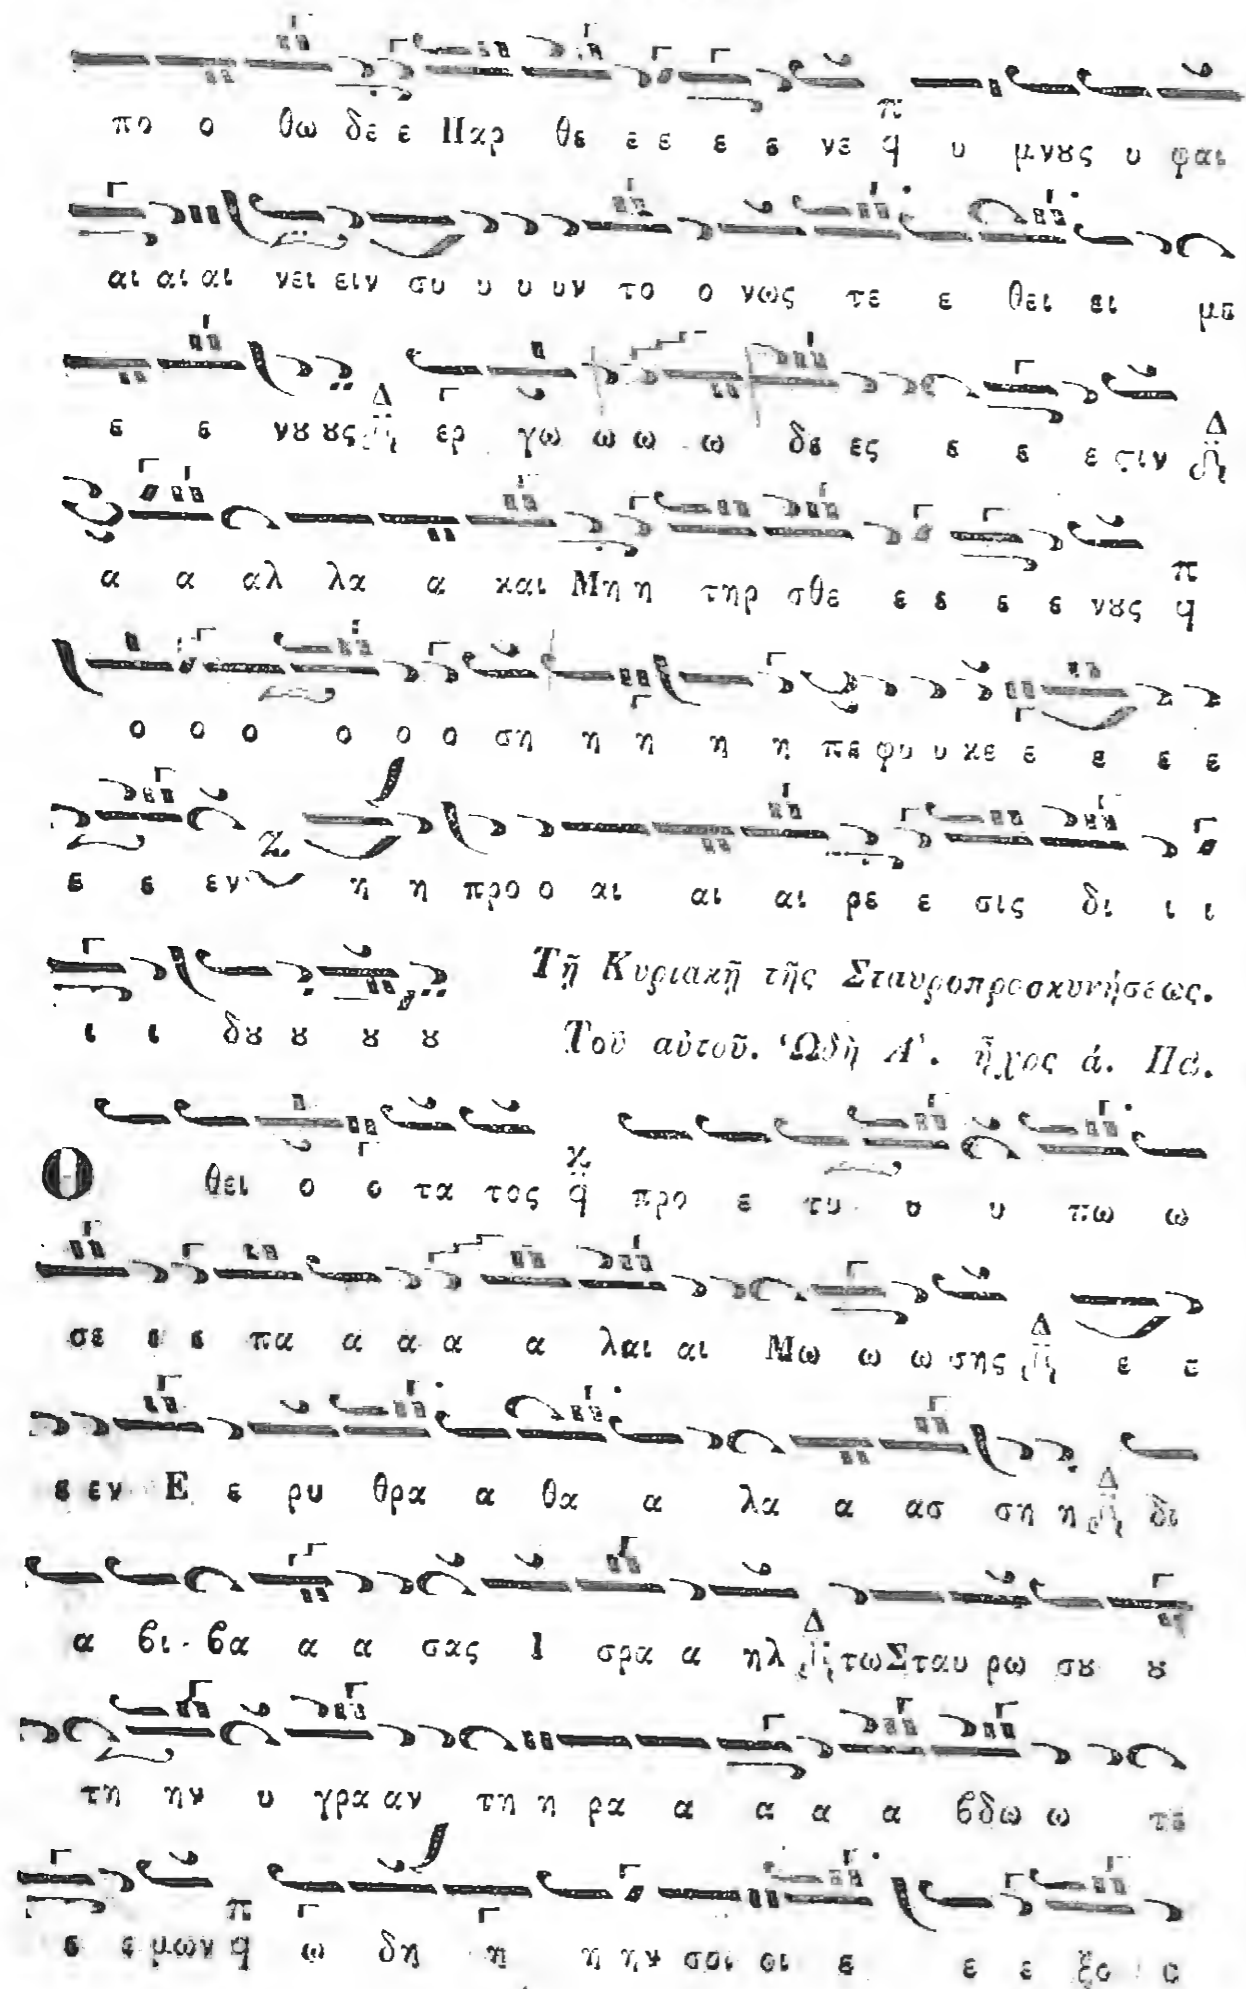 πο ο θω δε ε Παρ θε ε ε ε ε νε π q υ μνȣς υ φαι
αι αι αι νει ειν συ υ υ υν το ο νως τε ε θει ει με
ε ε νȣ ȣς Δ ερ γω ω ω ω δε ες ε ε ε ςιν Δ
α α αλ λα α και Μη η τηρ σθε ε ε ε ε νȣς π q
ο ο ο ο ο ο ση η η η η πε φυ υ κε ε ε ε ε
ε ε εν η η προ ο αι αι αι ρε ε σις δι ι ι
ι ι δȣ ȣ ȣ ȣ Τῇ Κυριακῇ τῆς Σταυροπροσκυνήσεως.
Τοῦ αὐτοῦ. Ὠδὴ Α΄. ἦχος ά. Πα.
Ο θει ο ο τα τος ϗ q προ ε τυ υ υ πω ω
σε ε ε πα α α α α λαι αι Μω ω ω σης Δ ε ε
ε εν Ε ε ρυ θρα α θα α λα α ασ ση η Δ δι
α βι βα α α σας Ι σρα α ηλ Δ τω Σταυ ρω σȣ ȣ
τη ην υ γρα αν τη η ρα α α α α βδω ω τε
ε ε μων π q ω δη η η ην σοι οι ε ε ε ξο ο